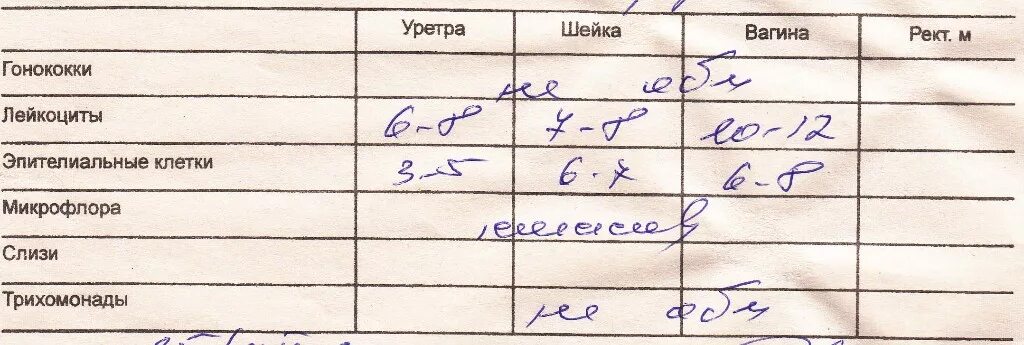 Уретра Шейка Вагина Рект. м
Гонококки не обн
Лейкоциты 6-8 7-8 10-12
Эпителиальные клетки 3-5 6-7 6-8
Микрофлора
Слизи
Трихомонады не обн